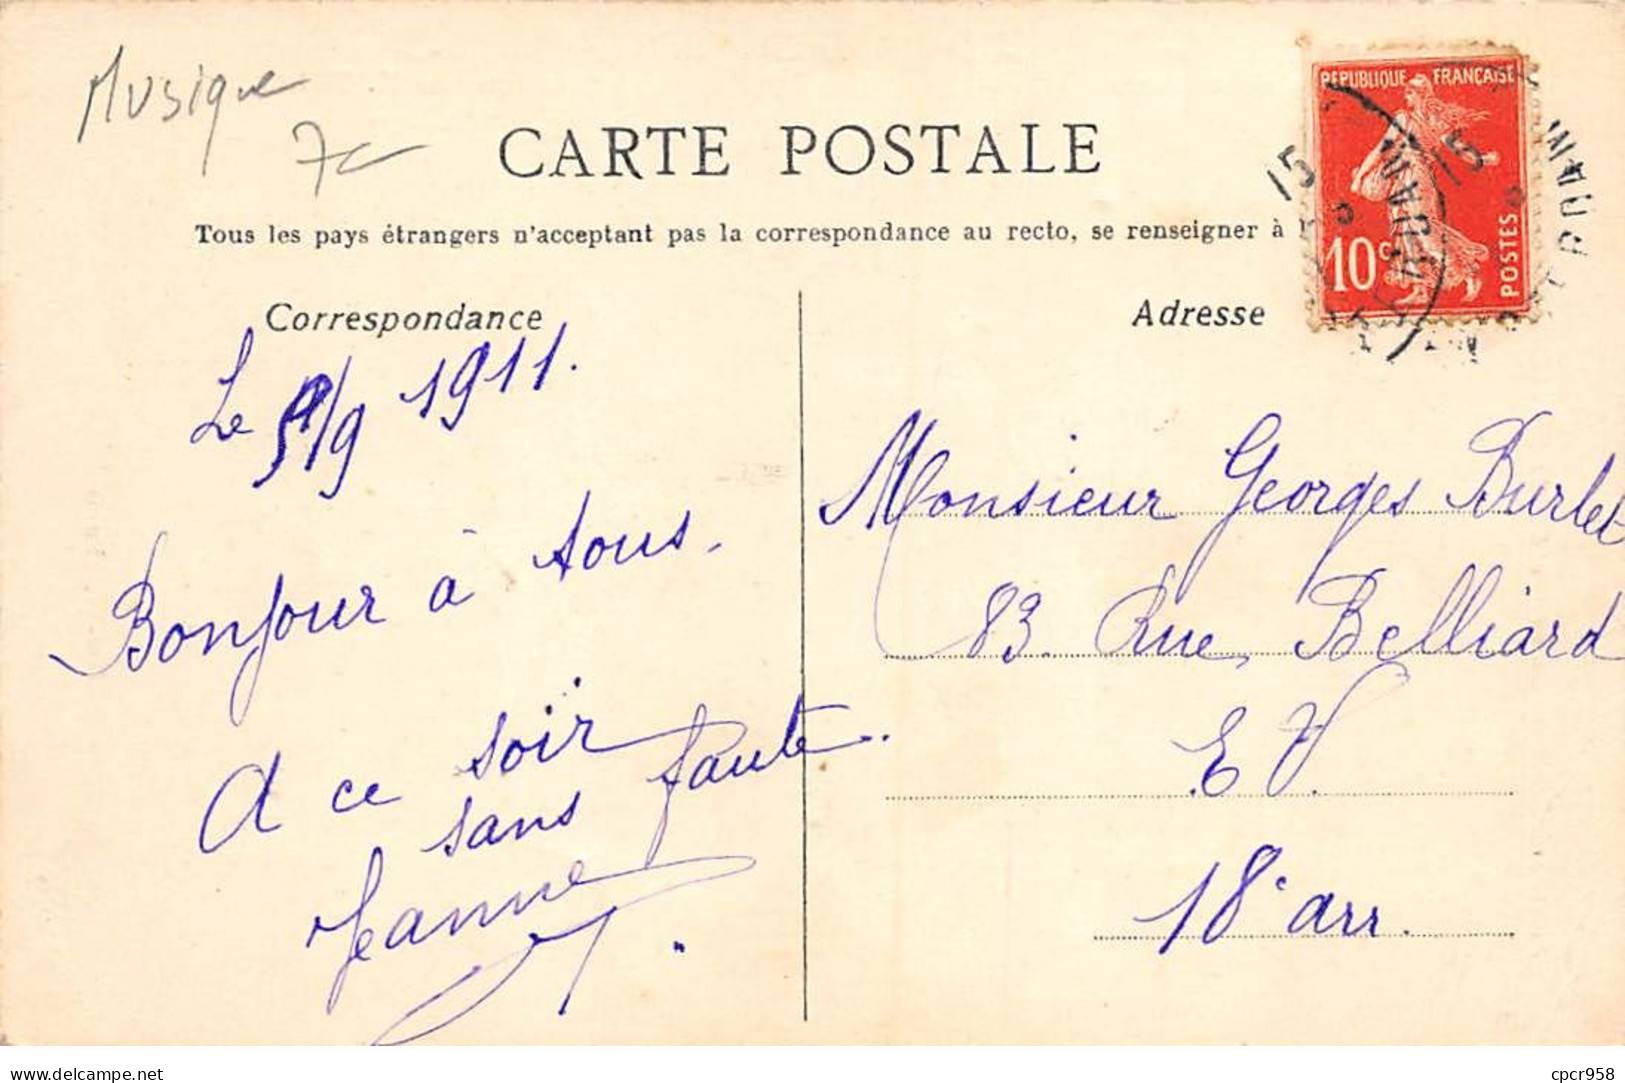 Musique
7c
CARTE POSTALE
Tous les pays étrangers n'acceptant pas la correspondance au recto, se renseigner à
REPUBLIQUE FRANÇAISE
10c
POSTES
15
15
Correspondance
Adresse
Le /9 1911.
Bonjour à tous.
A ce soir
sans faute.
Jeanne
Monsieur Georges Burlet
83. Rue Belliard
E.V.
18e arr.
www.delcampe.net
cpcr958